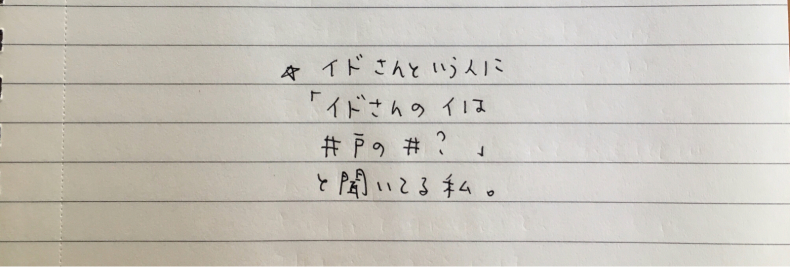 ☆ イドさんという人に
「イドさんのイは
井戸の井?」
と聞いてる私。